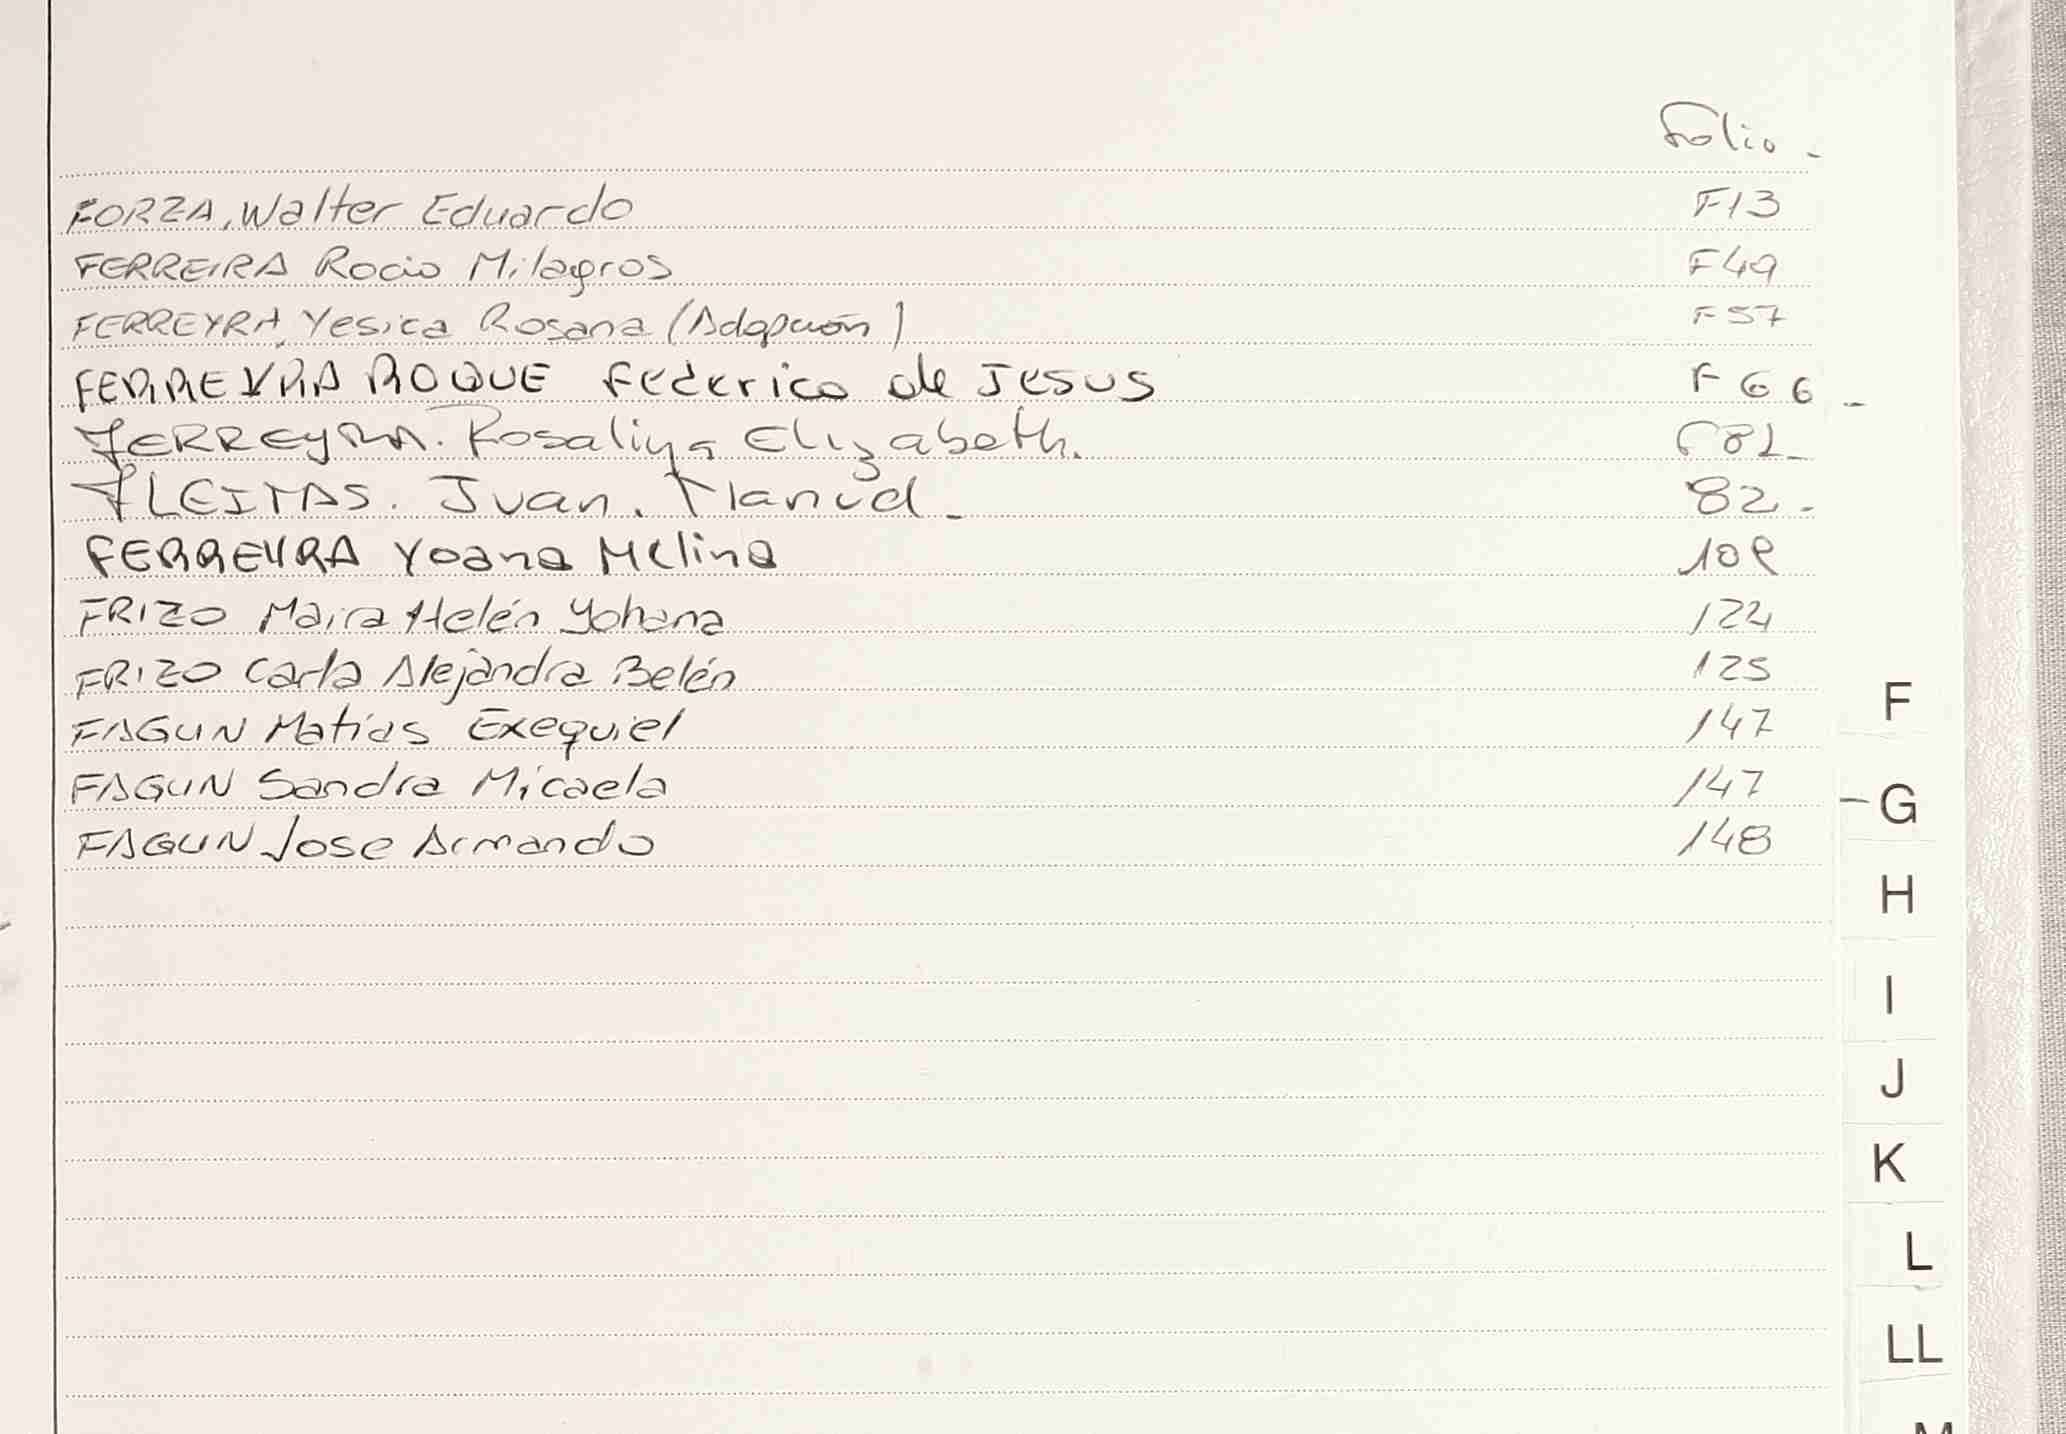 Folio -
FORZA, Walter Eduardo F13
FERREIRA Rocio Milagros F49
FERREYRA, Yesica Rosana (Adopción) F57
FERREYRA ROQUE Federico de Jesus F 66 -
FERREYRA. Rosalina Elizabeth. F82-
FLEITAS. Juan. Manuel - 82 -
FERREYRA Yoana Melina 109
FRIZO Maira Helén Yohana 124
FRIZO Carla Alejandra Belén 125
FAGUN Matías Exequiel 147
FAGUN Sandra Micaela 147
FAGUN Jose Armando 148
F
G
H
I
J
K
L
LL
M